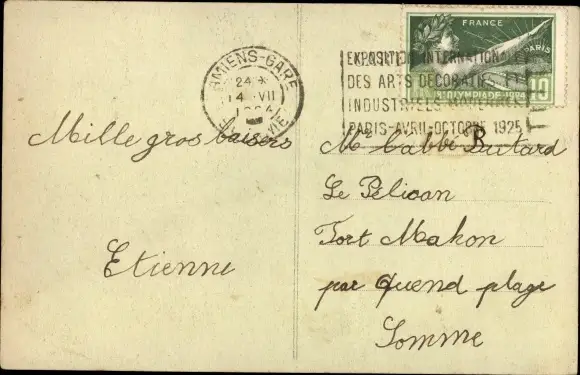 FRANCE
PARIS
10
8E OLYMPIADE 1924
AMIENS-GARE
24 *
14 VII
EXPOSITION INTERNATION
DES ARTS DÉCORATIFS ET
INDUSTRIELS MODERNES
PARIS-AVRIL-OCTOBRE 1925
Mille gros baisers
Etienne
Mr l'abbé
Le Pélican
Fort Mahon
par Quend plage
Somme